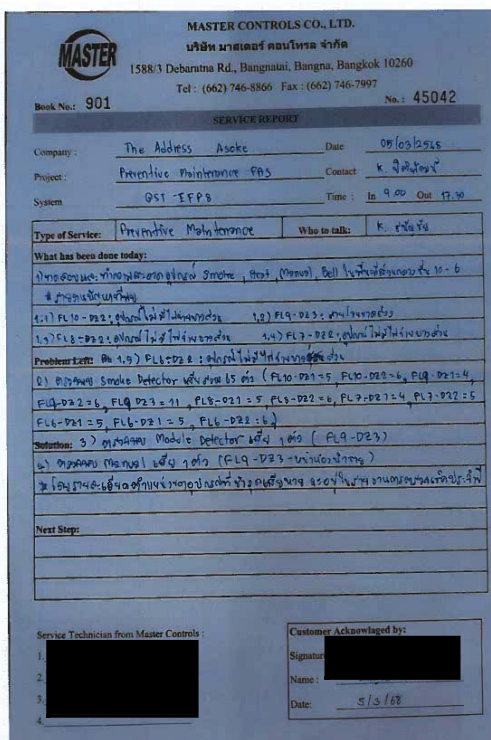 MASTER
MASTER CONTROLS CO., LTD.
บริษัท มาสเตอร์ คอนโทรล จำกัด
1588/3 Debaratna Rd., Bangnatai, Bangna, Bangkok 10260
Tel : (662) 746-8866 Fax : (662) 746-7997
Book No.: 901 No. : 45042
SERVICE REPORT
Company : The Address Asoke Date 05/03/2568
Project : Preventive Maintenance FAS Contact K.
System GST-IFP8 Time : In 9.00 Out 17.30
Type of Service: Preventive Maintenance Who to talk: K.
What has been done today:
1) ทดสอบและทำความสะอาดอุปกรณ์ Smoke, Heat, Manual, Bell ในพื้นที่ส่วนกลาง ชั้น 10-6
* รายงานปัญหาที่พบ
1.1) FL10-DZ2 : อุปกรณ์ไม่มีไฟจ่ายบางส่วน 1.2) FL9-DZ3 :
1.3) FL8-DZ2 : อุปกรณ์ไม่มีไฟจ่ายบางส่วน 1.4) FL7-DZ2 : อุปกรณ์ไม่มีไฟจ่ายบางส่วน
Problem Left: 1.5) FL6-DZ2 : อุปกรณ์ไม่มีไฟจ่ายบางส่วน
2) ตรวจพบ Smoke Detector 65 ตัว (FL10-DZ1=5, FL10-DZ2=6, FL9-DZ1=4,
FL9-DZ2=6, FL9 DZ3=11, FL8-DZ1=5 FL8-DZ2=6, FL7-DZ1=4, FL7-DZ2=5
FL6-DZ1=5, FL6-DZ1=5, FL6-DZ2=6)
Solution: 3) ตรวจพบ Module Detector เสีย 1 ตัว (FL9-DZ3)
4) ตรวจพบ Manual เสีย 1 ตัว (FL9-DZ3-)
* โดยรายละเอียดตำแหน่งของอุปกรณ์ที่ชำรุดเสียหาย จะอยู่ในรายงานการตรวจเช็คประจำปี
Next Step:
Service Technician from Master Controls :
1.
2.
3.
4.
Customer Acknowlaged by:
Signature
Name :
Date: 5/3/68